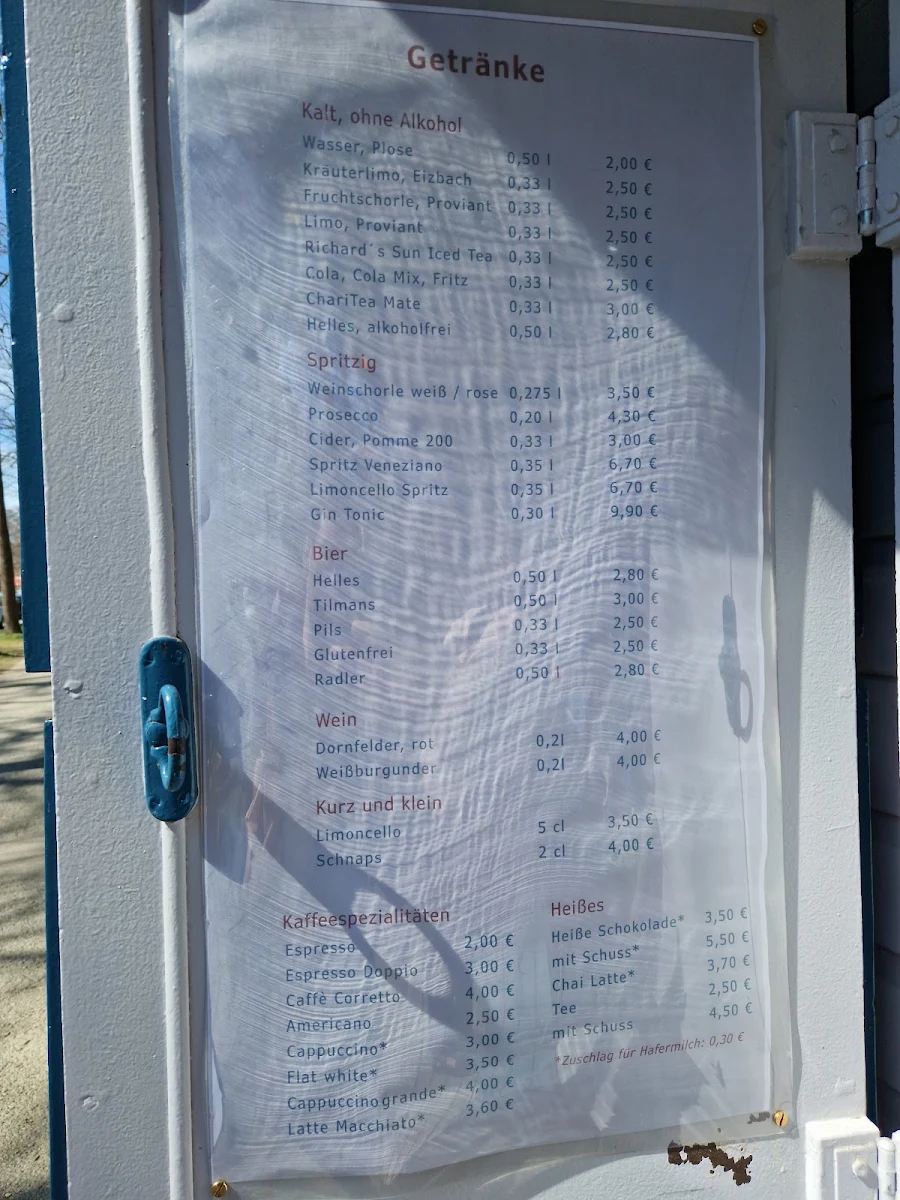 Getränke
Kalt, ohne Alkohol
Wasser, Plose 0,50 l 2,00 €
Kräuterlimo, Eizbach 0,33 l 2,50 €
Fruchtschorle, Proviant 0,33 l 2,50 €
Limo, Proviant 0,33 l 2,50 €
Richard´s Sun Iced Tea 0,33 l 2,50 €
Cola, Cola Mix, Fritz 0,33 l 2,50 €
ChariTea Mate 0,33 l 3,00 €
Helles, alkoholfrei 0,50 l 2,80 €
Spritzig
Weinschorle weiß / rose 0,275 l 3,50 €
Prosecco 0,20 l 4,30 €
Cider, Pomme 200 0,33 l 3,00 €
Spritz Veneziano 0,35 l 6,70 €
Limoncello Spritz 0,35 l 6,70 €
Gin Tonic 0,30 l 9,90 €
Bier
Helles 0,50 l 2,80 €
Tilmans 0,50 l 3,00 €
Pils 0,33 l 2,50 €
Glutenfrei 0,33 l 2,50 €
Radler 0,50 l 2,80 €
Wein
Dornfelder, rot 0,2l 4,00 €
Weißburgunder 0,2l 4,00 €
Kurz und klein
Limoncello 5 cl 3,50 €
Schnaps 2 cl 4,00 €
Kaffeespezialitäten
Espresso 2,00 €
Espresso Doppio 3,00 €
Caffè Corretto 4,00 €
Americano 2,50 €
Cappuccino* 3,00 €
Flat white* 3,50 €
Cappuccino grande* 4,00 €
Latte Macchiato* 3,60 €
Heißes
Heiße Schokolade* 3,50 €
mit Schuss* 5,50 €
Chai Latte* 3,70 €
Tee 2,50 €
mit Schuss 4,50 €
*Zuschlag für Hafermilch: 0,30 €